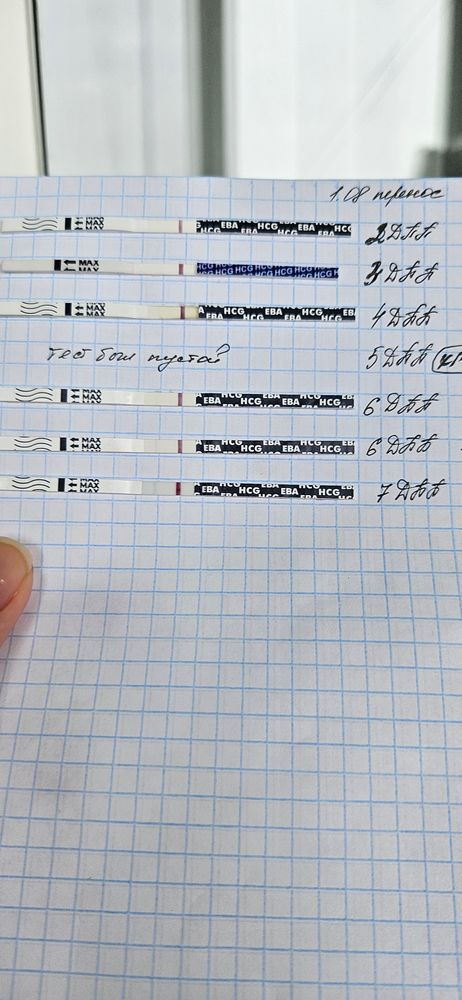 1.08 перенос
MAX MAX HCG EBA HCG EBA HCG EBA HCG 2 ДПП
MAX MAX HCG HCG HCG HCG HCG HCG 3 ДПП
MAX MAX HCG EBA HCG EBA HCG 4 ДПП
тест был пустой 5 ДПП
MAX MAX EBA HCG EBA HCG 6 ДПП
MAX MAX EBA HCG EBA HCG 6 ДПП
MAX MAX EBA HCG EBA HCG 7 ДПП